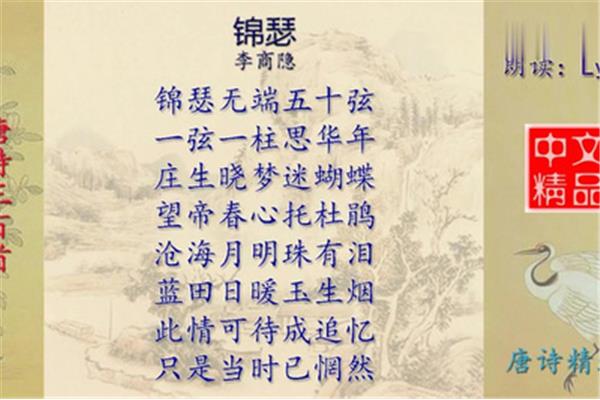 锦瑟
李商隐
锦瑟无端五十弦
一弦一柱思华年
庄生晓梦迷蝴蝶
望帝春心托杜鹃
沧海月明珠有泪
蓝田日暖玉生烟
此情可待成追忆
只是当时已惘然
唐诗三百首
朗读：Ly
中文
精品
唐诗精